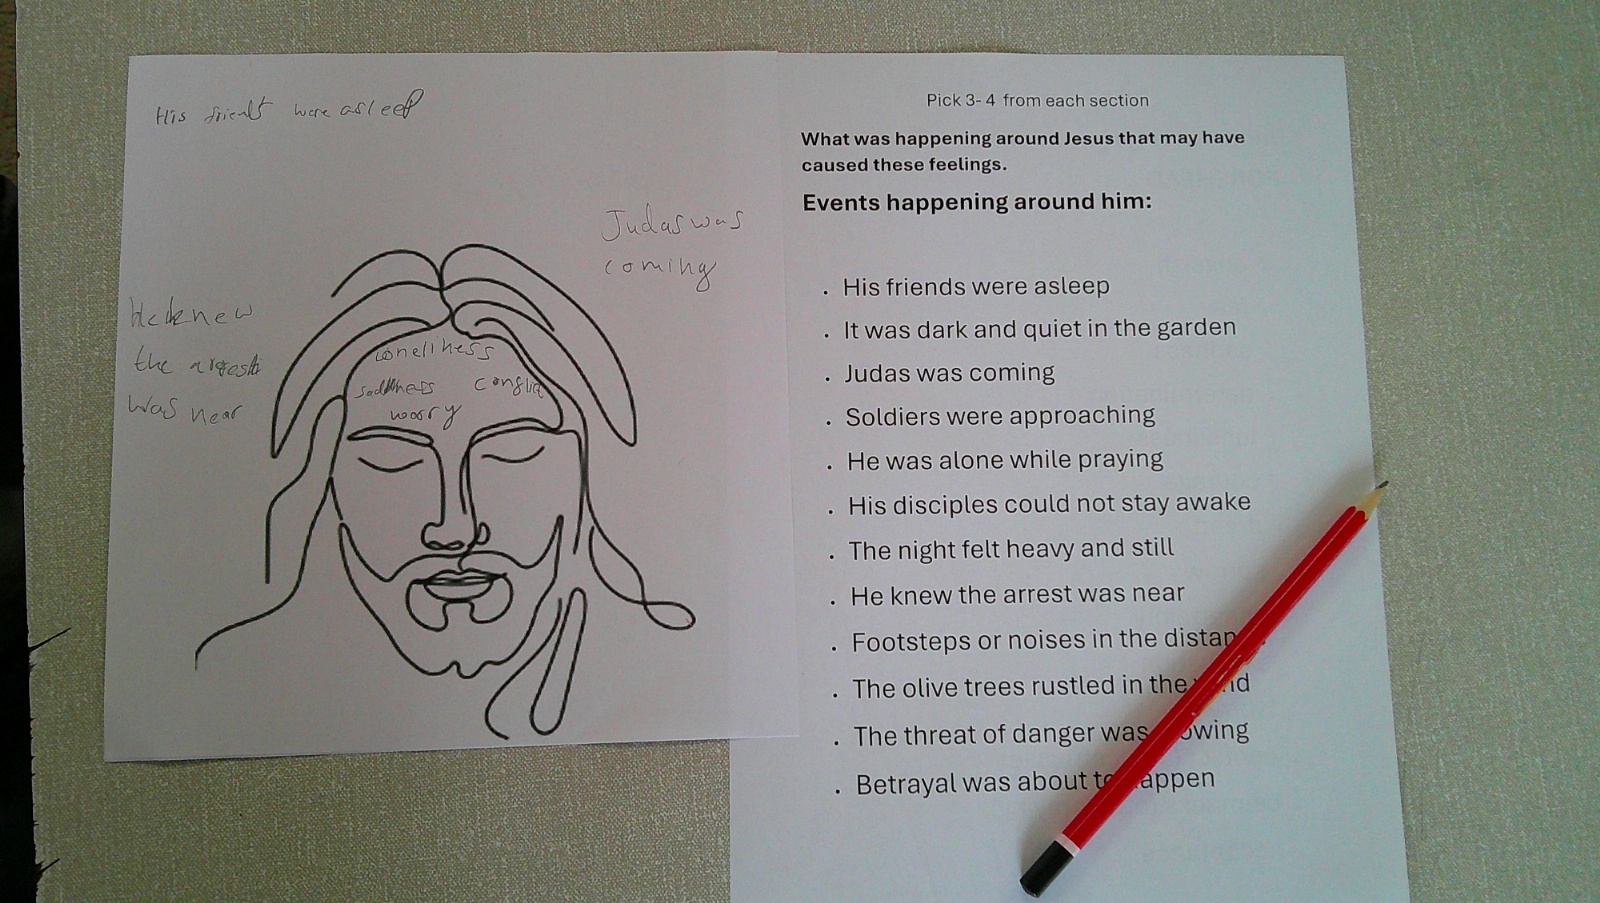 His friends were asleep
Judas was
coming
He knew
the arrest
was near
loneliness
sadness
worry
Pick 3- 4 from each section
What was happening around Jesus that may have
caused these feelings.
Events happening around him:
. His friends were asleep
. It was dark and quiet in the garden
. Judas was coming
. Soldiers were approaching
. He was alone while praying
. His disciples could not stay awake
. The night felt heavy and still
. He knew the arrest was near
. Footsteps or noises in the
. The olive trees rustled in the
. The threat of danger was
. Betrayal was about